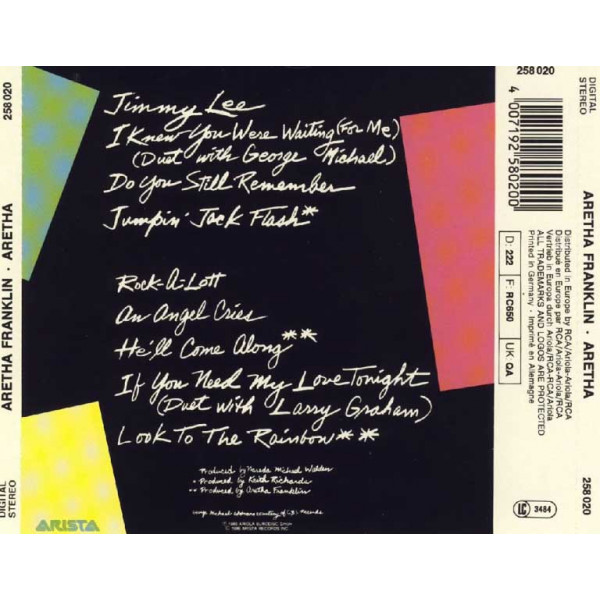 258 020
DIGITAL
STEREO
ARETHA FRANKLIN · ARETHA
Jimmy Lee
I Knew You Were Waiting (For Me)
(Duet with George Michael)
Do You Still Remember
Jumpin' Jack Flash*
Rock-A-Lott
An Angel Cries
He'll Come Along**
If You Need My Love Tonight
(Duet with Larry Graham)
Look To The Rainbow**
Produced by Narada Michael Walden
* Produced by Keith Richards
** Produced by Aretha Franklin
George Michael appears courtesy of CBS Records
℗ 1986 ARIOLA EURODISC GMBH
© 1986 ARISTA RECORDS INC.
ARISTA
258 020
DIGITAL
STEREO
4 007192 580200
D: 222
F: RC650
UK: QA
Distributed in Europe by RCA/Ariola-Ariola/RCA
Distribué en Europe par RCA/Ariola-Ariola/RCA
Vertrieb in Europa durch Ariola/RCA-RCA/Ariola
ALL TRADEMARKS AND LOGOS ARE PROTECTED
Printed in Germany · Imprimé en Allemagne
LC 3484
ARETHA FRANKLIN · ARETHA
258 020
DIGITAL
STEREO
258 020